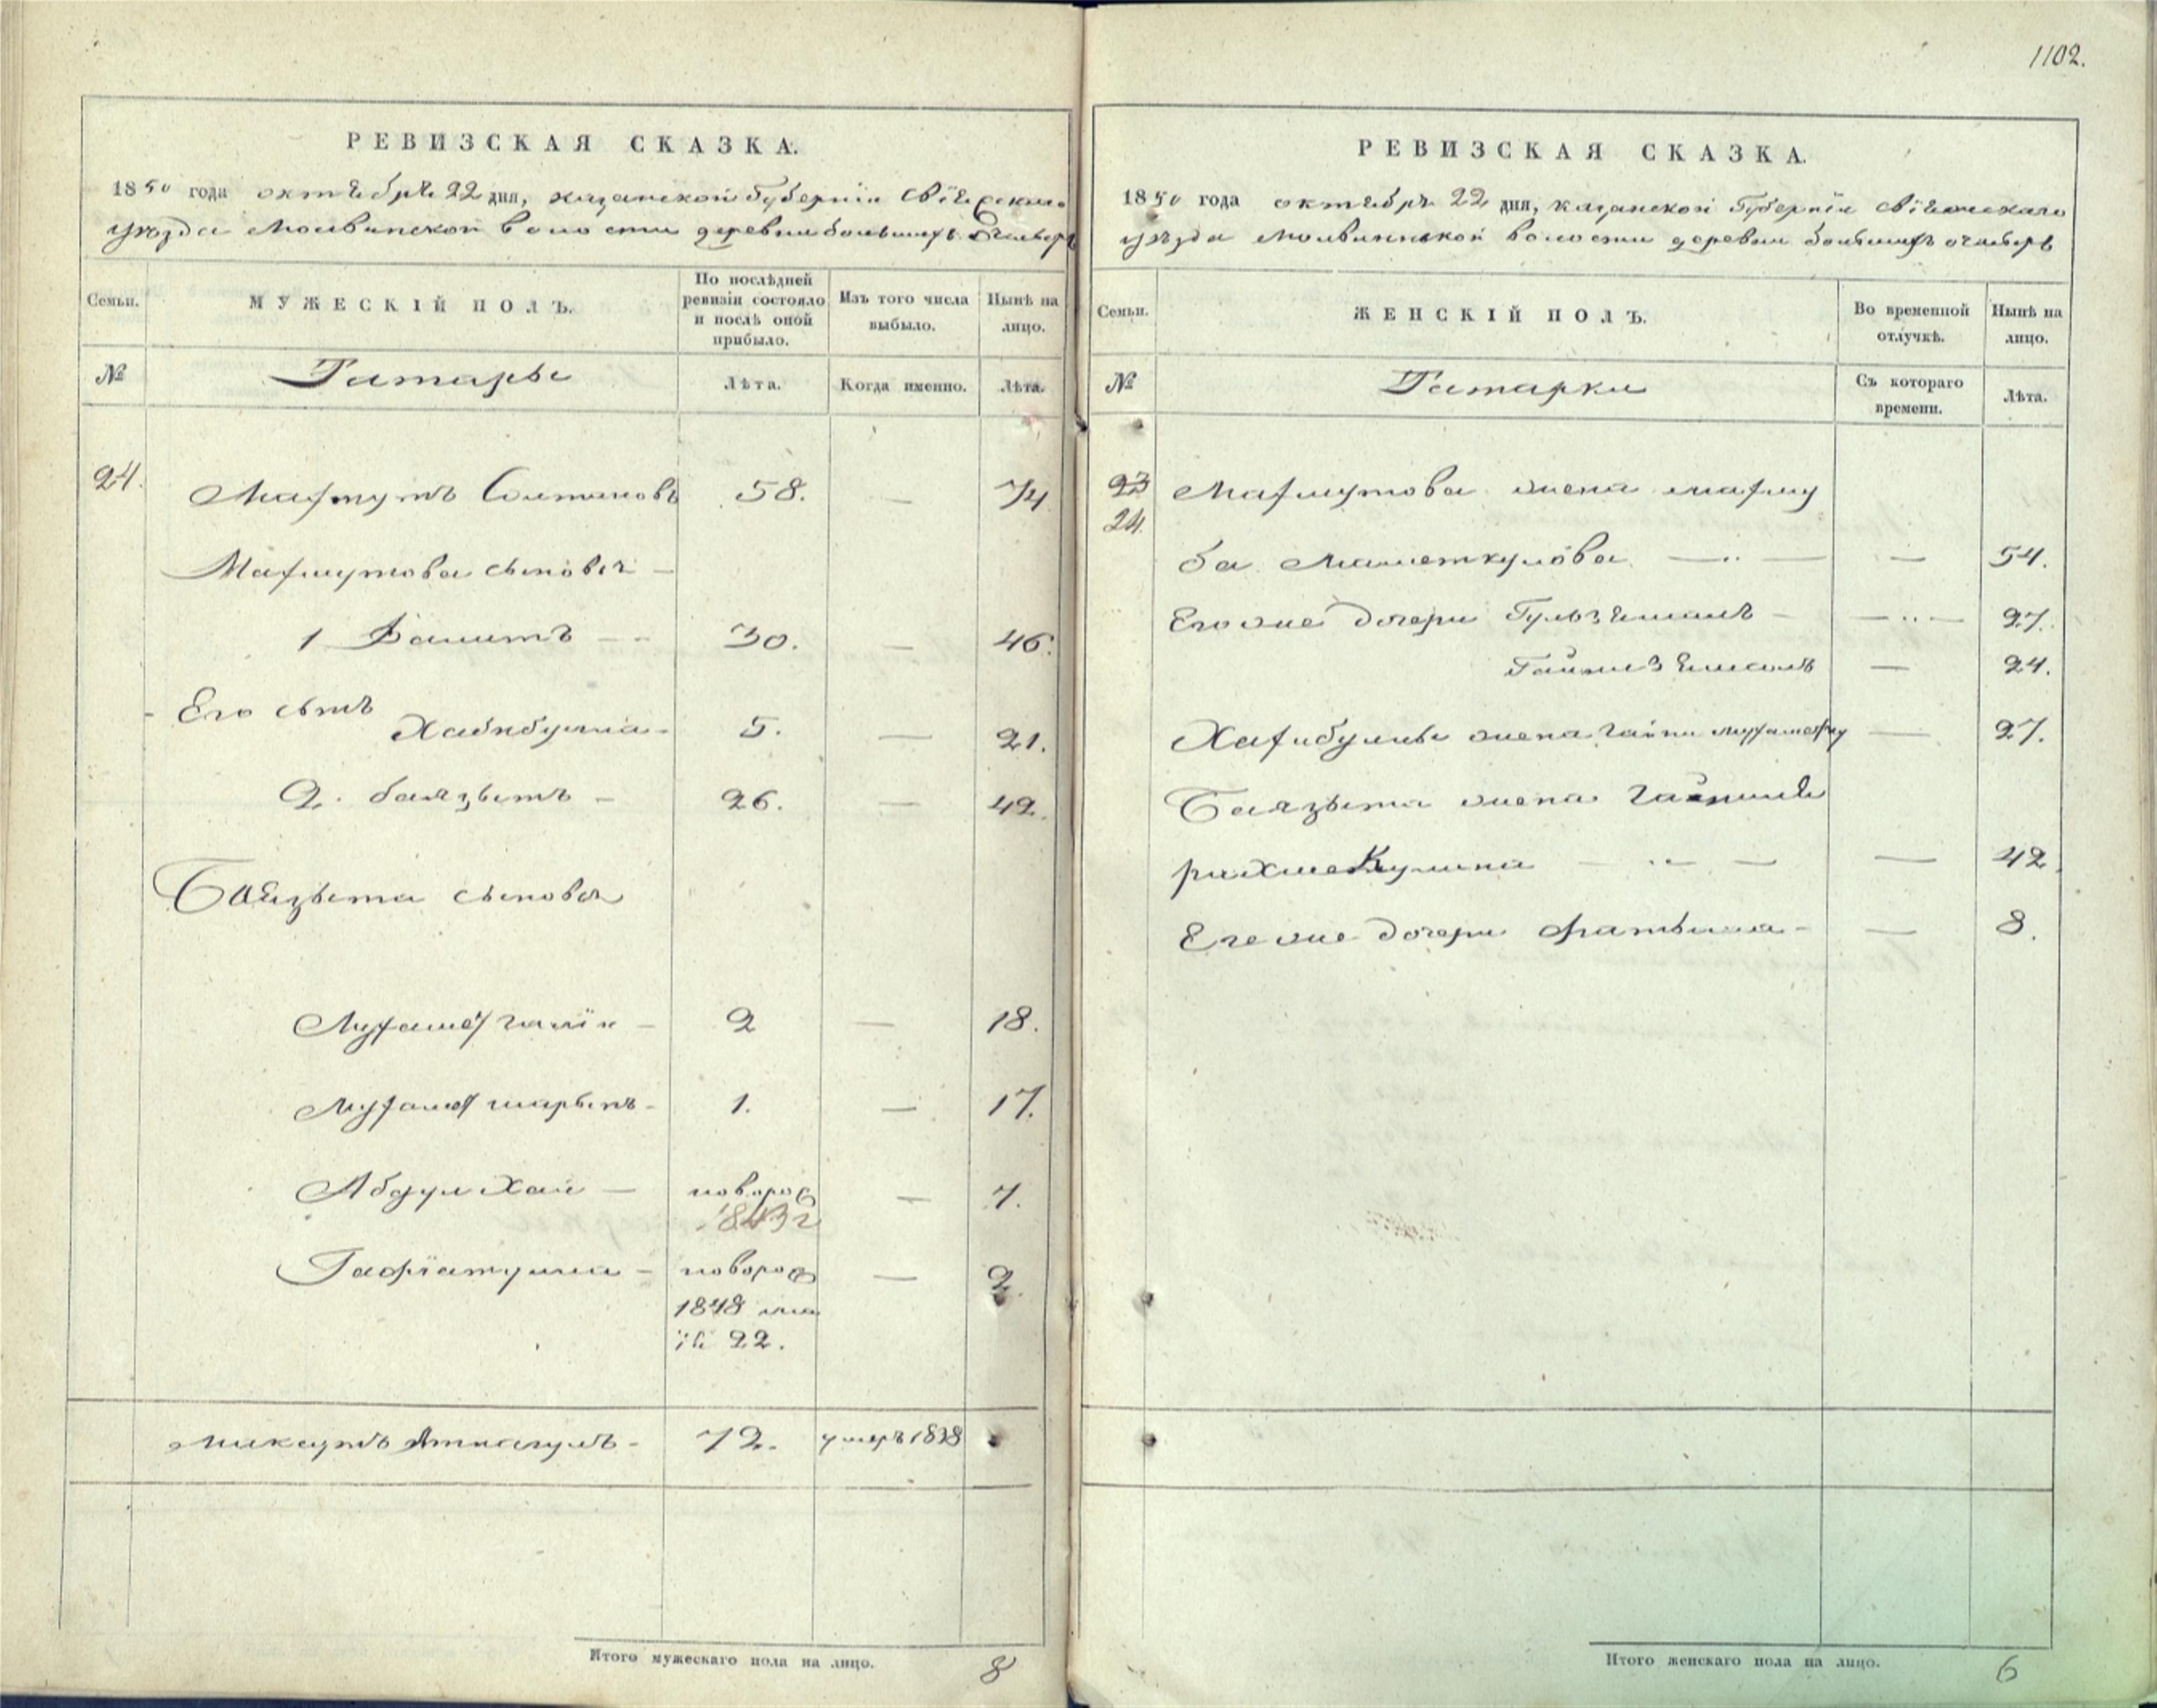 РЕВИЗСКАЯ СКАЗКА.
1850 года октября 22 дня, казанской Губерніи Свіяжскаго
уѣзда Молвинской волости деревни большихъ Ачасыръ
Семьи.
МУЖЕСКІЙ ПОЛЪ.
По послѣдней ревизіи состояло и послѣ оной прибыло.
Изъ того числа выбыло.
Нынѣ на лицо.
№
Татары
Лѣта.
Когда именно.
Лѣта.
24. Махмутъ Солтановъ 58. — 74
Махмутова сыновья —
1 Валитъ — 30. — 46.
Его сынъ
Хабибулла — 5. — 21.
2. баязытъ — 26. — 42.
Баязыта сыновья
Мухамет галіи — 2 — 18.
Мухамет шарыпъ — 1. — 17.
Абдул Хаи — новорож — 7.
1843 г
Гафіатулла — новорож — 2.
1848 ма
22.
72. умеръ 1838
Итого мужескаго пола на лицо. 8
1102.
РЕВИЗСКАЯ СКАЗКА.
1850 года октября 22 дня, казанской Губерніи Свіяжскаго
уѣзда Молвинской волости деревни большихъ Ачасыръ
Семьи.
ЖЕНСКІЙ ПОЛЪ.
Во временной отлучкѣ.
Нынѣ на лицо.
№
Татарки
Съ котораго времени.
Лѣта.
23 Махмутова жена махму
24
ба Маметкулова — — 54.
Его же дочери Гульзямалъ — — 27.
Гайнизямалъ — 24.
Хабибуллы жена гайни — 27.
Баязыта жена
рахмекулина — — 42.
Его же дочери Фатыма — — 8.
Итого женскаго пола на лицо. 6